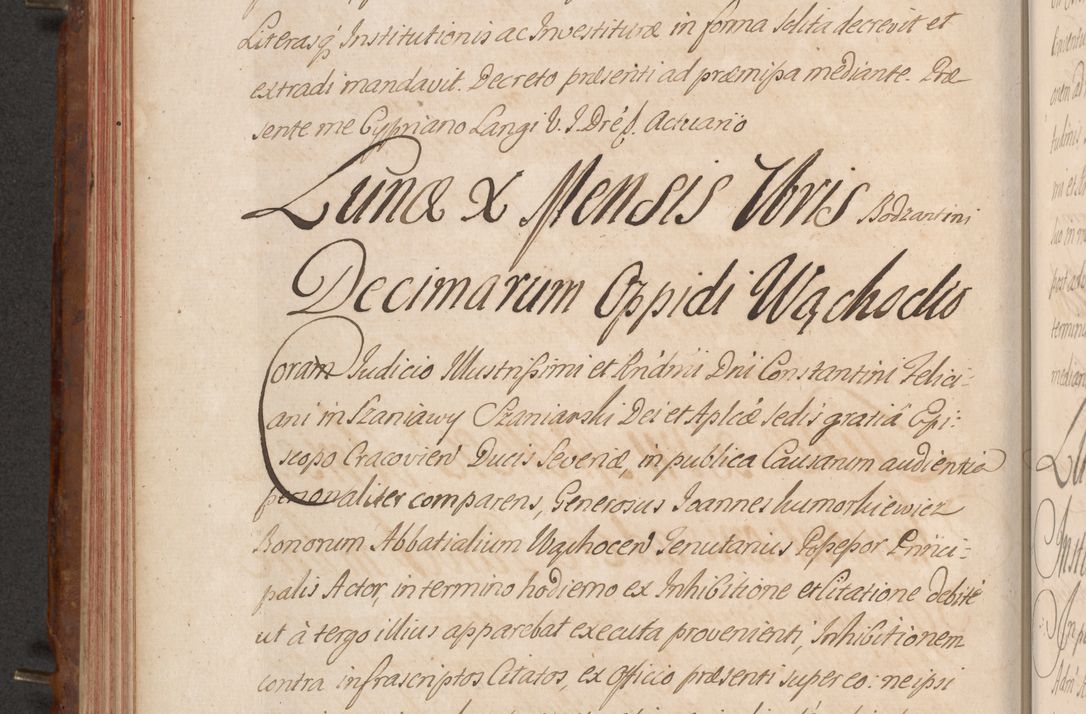 Literasq́ Institutionis ac Investituræ in forma solita decrevit et
extradi mandavit. Decreto præsenti ad præmißa mediante. Præ
sente me Cypriano Langi
Lunæ X Mensis 7bris Bodzantini
Decimarum Oppidi Wąchoclio
Coram Judicio Illustrißimi et Rndmi Dni Constantini Felici-
ani in Szaniawy Szaniarski Dei et Aplicæ sedis gratiâ Epi:
scopo Cracovien Ducis Severiæ, in publica Causarum audientia
personaliter comparens, Generosus Joannes humorkiewicz
Bonorum Abbatialium Wąchocen Tenutarius Poßeßor Princi-
palis Actor, in termino hodierno ex Inhibitione et Citatione debitè
ut à tergo illius apparebat executa provenienti, Inhibitionem
contra infrascriptos Citatos, ex Officio præsenti super eo: ne ipsi